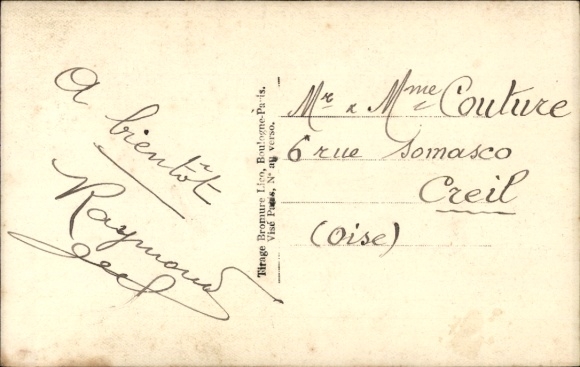 A bientôt
Raymond
Tirage Bromure Lico, Boulogne-Paris.
Visé Paris, Nº au verso.
Mr & Mme Couture
6 rue Somasco
Creil
(Oise)